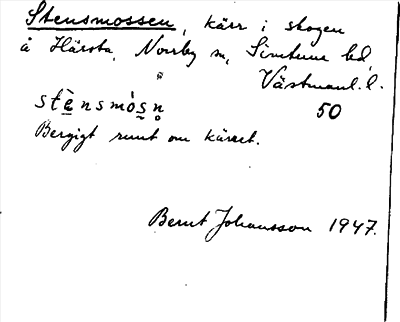 Stensmossen, kärr i skogen
å Härsta, Norrby sn, Simtuna hd,
Västmanl. l.
stènsmòsn 50
Bergigt runt om kärret.
Bernt Johansson 1947.